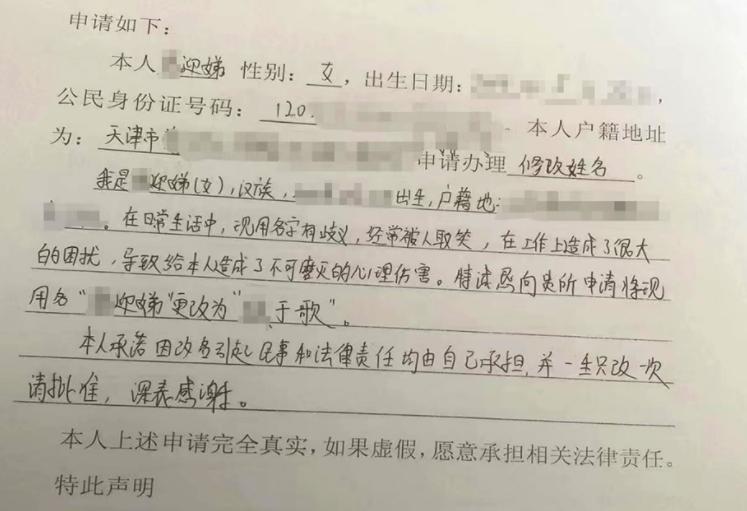 申请如下：
本人 迎娣 性别：女，出生日期：
公民身份证号码：120. 本人户籍地址
为：天津市 申请办理 修改姓名。
我是 迎娣(女)，汉族， 出生，户籍地：
。在日常生活中，现用名字有歧义，经常被人取笑，在工作上造成了很大
的困扰，导致给本人造成了不可磨灭的心理伤害。特决愿向贵所申请将现
用名“ 迎娣”更改为“ 于歌”。
本人承诺因改名引起民事和法律责任均由自己承担，并一生只改一次
请批准，深表感谢。
本人上述申请完全真实，如果虚假，愿意承担相关法律责任。
特此声明